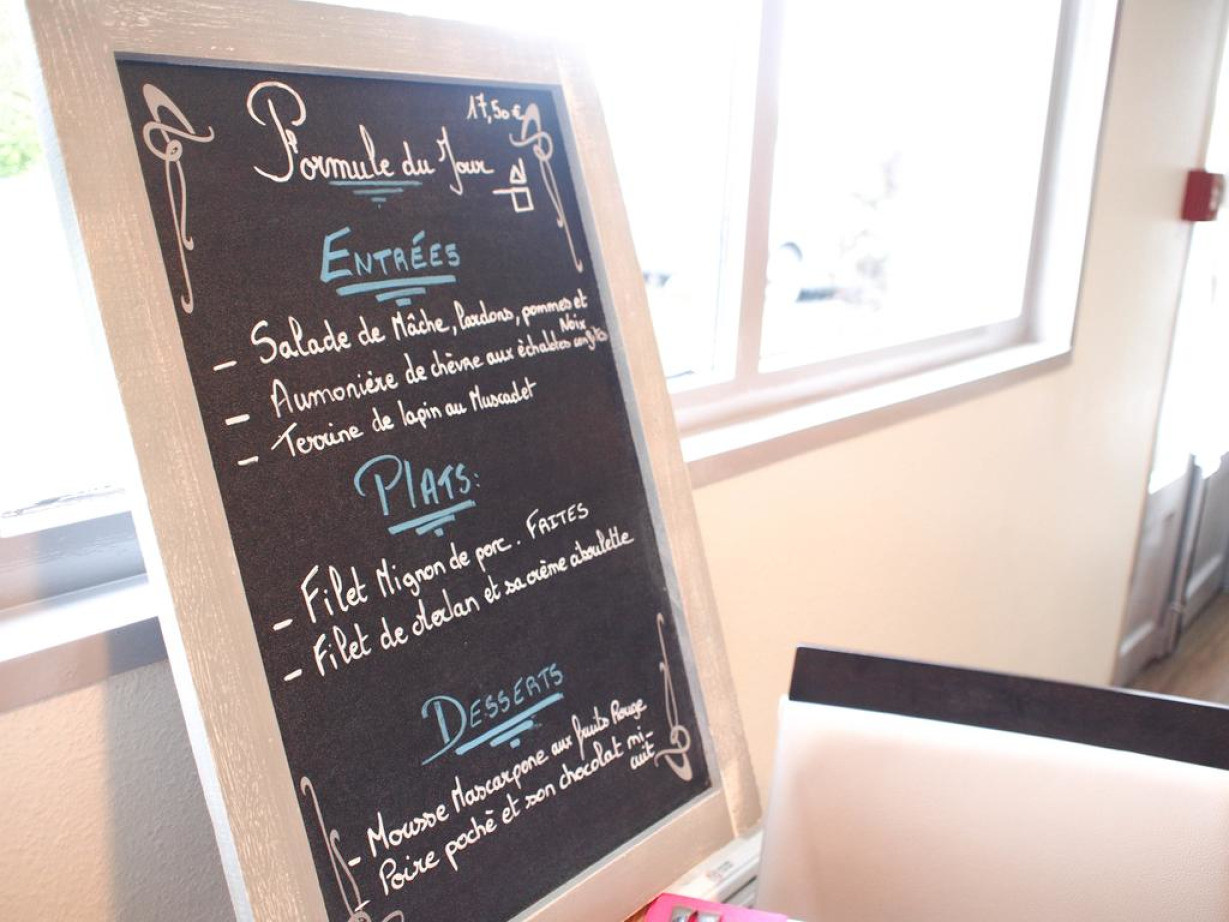 17,50€
Formule du Jour
ENTRÉES
- Salade de Mâche, lardons, pommes et
Noix
- Aumonière de chèvre aux échalotes confites
- Terrine de lapin au Muscadet
PLATS:
- Filet Mignon de porc. FRITES
- Filet de Merlan et sa crème ciboulette
DESSERTS
- Mousse Mascarpone aux fruits Rouge
- Poire poché et son chocolat mi-
cuit